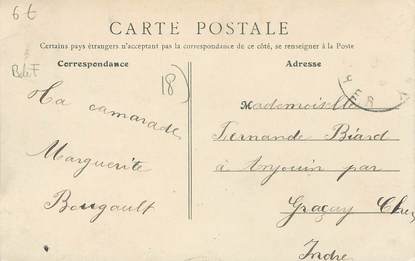 6 €
CARTE POSTALE
Certains pays étrangers n'acceptant pas la correspondance de ce côté, se renseigner à la Poste
Correspondance
Adresse
18)
Ta camarade
Marguerite
Bougault
Mademoiselle
Fernande Biard
à Anjouin par
Graçay Cher
Indre